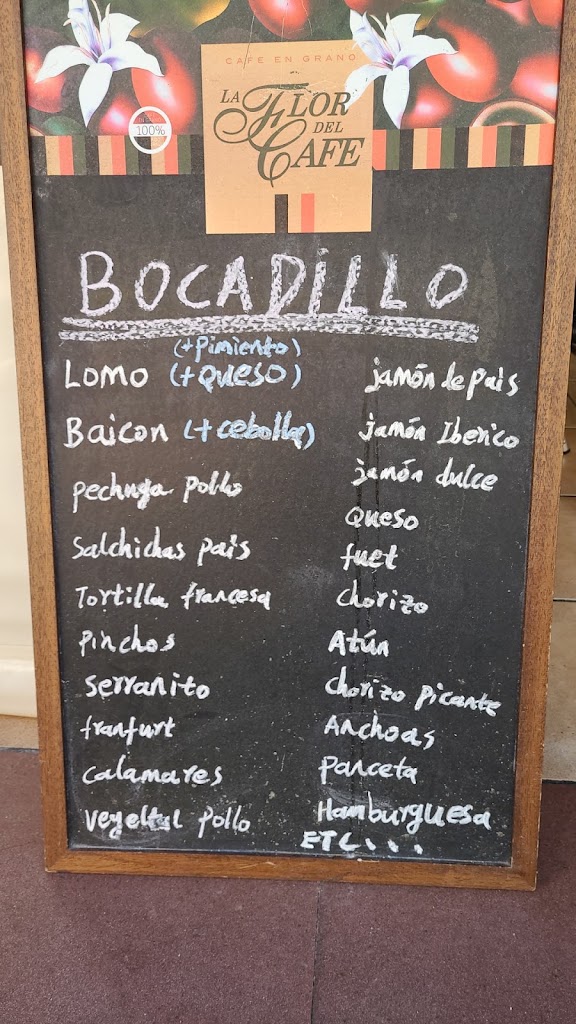 CAFE EN GRANO
LA FLOR
DEL
CAFE
100%
BOCADILLO
(+Pimiento)
LOMO (+QUESO)
Baicon (+cebolla)
pechuga pollo
Salchichas pais
Tortilla francesa
Pinchos
serranito
franfurt
calamares
vegeltal pollo
jamón de pais
jamón Iberico
jamón dulce
Queso
fuet
chorizo
Atún
chorizo picante
Anchoas
panceta
Hamburguesa
ETC...